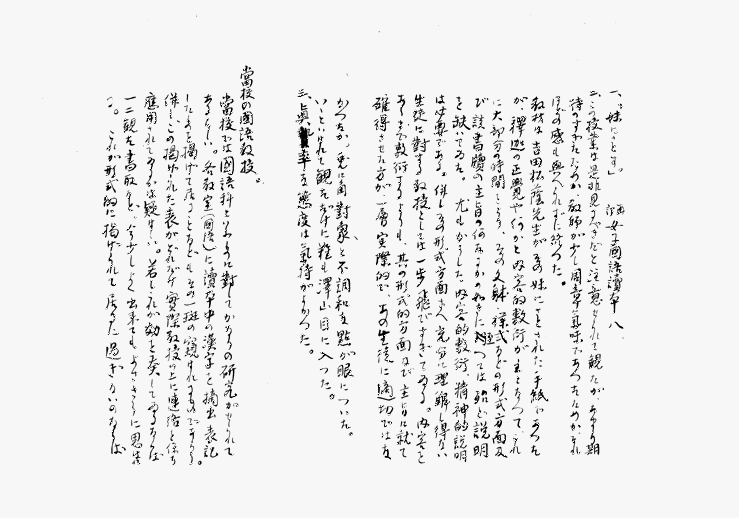 一、「妹にさとす」 女子國語讀本八、
二、この授業は是非見るべきだと注意せられて観たが、あまり期
待のすぎたためか、教師が少し周章気味であつたためか、それ
ほどの感も與へられずに終つた。
教材は吉田松陰先生がその妹にさとされた手紙であつた
が、釋迦の正覺や何かと内容的敷衍が主となつて、これ
に大部分の時間をとり、その文躰、様式などの形式方面及
び該書牘の主旨の何なるかの如きに到つては殆ど説明
を缺いてゐた。尤もかうした内容的敷衍、精神的説明
は必要である。併しその形式方面さへ充分に理解し得ない
生徒に對する教授としては一歩飛びすぎてゐる。内容を
あくまで敷衍するよりも、其の形式的方面及び主旨に就て
確得させた方が一層実際的で、あの生徒に適切ではな
かつたか。兎に角對象と不調和な點が眼についた。
いゝといはれて観たゞけに粗も澤山目に入つた。
三、真率な態度は氣持がよかつた。
當校の國語教授。
當校では國語科といふものに對してかなりの研究がせられて
あるらしい。各教室(國語)に讀本中の漢字を摘出表記
したものを掲げて居つたことなどもその一斑の窺はれるものであらう。
併しこの掲げられた表がどれだけ実際教授の上に連絡を保ち
應用されてゐるかは疑はしい。若しこれが効を奏してゐるならば
一二観た書取など、今少しよく出来てもよささうに思は
る。これが形式的に掲げられて居るに過ぎないのならば